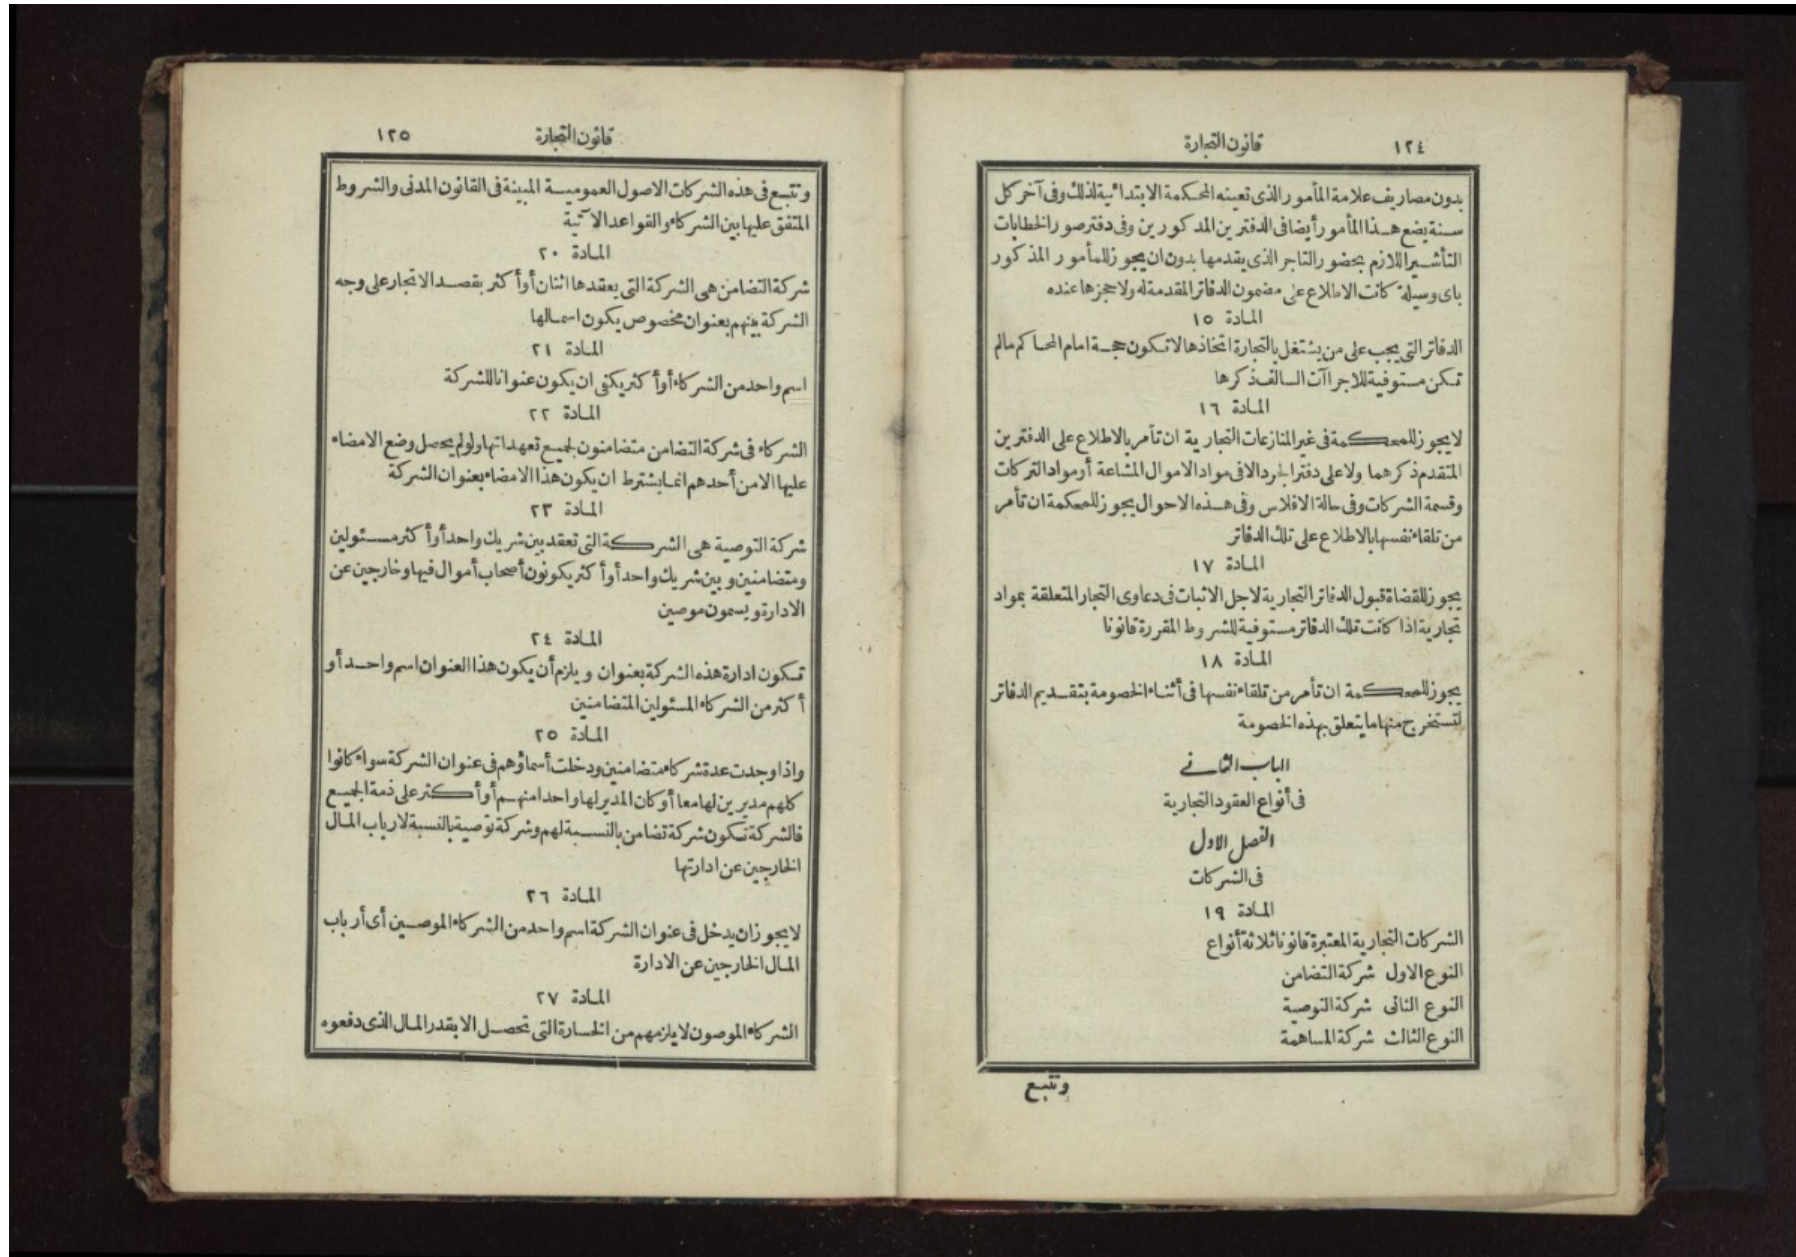 ١٢٤
قانون التجارة
بدون مصاريف علامة المأمور الذى تعينه المحكمة الابتدائية لذلك وفى آخر كل
سنة يضع هذا المأمور أيضا فى الدفترين المذكورين وفى دفتر صور الخطابات
التأشير اللازم بحضور التاجر الذى يقدمها بدون ان يجوز للمأمور المذكور
باى وسيلة كانت الاطلاع على مضمون الدفاتر المقدمة له ولا حجزها عنده
المادة ١٥
الدفاتر التى يجب على من يشتغل بالتجارة اتخاذها لا تكون حجة امام المحاكم مالم
تكن مستوفية للاجراآت السالف ذكرها
المادة ١٦
لا يجوز للمحكمة فى غير المنازعات التجارية ان تأمر بالاطلاع على الدفترين
المتقدم ذكرهما ولا على دفتر الجرد الا فى مواد الاموال المشاعة أو مواد التركات
وقسمة الشركات وفى حالة الافلاس وفى هذه الاحوال يجوز للمحكمة ان تأمر
من تلقاء نفسها بالاطلاع على تلك الدفاتر
المادة ١٧
يجوز للقضاة قبول الدفاتر التجارية لاجل الاثبات فى دعاوى التجار المتعلقة بمواد
تجارية اذا كانت تلك الدفاتر مستوفية للشروط المقررة قانونا
المادة ١٨
يجوز للمحكمة ان تأمر من تلقاء نفسها فى أثناء الخصومة بتقديم الدفاتر
لتستخرج منها ما يتعلق بهذه الخصومة
الباب الثانى
فى أنواع العقود التجارية
الفصل الاول
فى الشركات
المادة ١٩
الشركات التجارية المعتبرة قانونا ثلاثة أنواع
النوع الاول شركة التضامن
النوع الثانى شركة التوصية
النوع الثالث شركة المساهمة
وتتبع
قانون التجارة
١٢٥
وتتبع فى هذه الشركات الاصول العمومية المبينة فى القانون المدنى والشروط
المتفق عليها بين الشركاء والقواعد الآتية
المادة ٢٠
شركة التضامن هى الشركة التى يعقدها اثنان أو أكثر بقصد الاتجار على وجه
الشركة بينهم بعنوان مخصوص يكون اسما لها
المادة ٢١
اسم واحد من الشركاء أو أكثر يكفى ان يكون عنوانا للشركة
المادة ٢٢
الشركاء فى شركة التضامن متضامنون لجميع تعهداتها ولو لم يحصل وضع الامضاء
عليها الا من أحدهم انما يشترط ان يكون هذا الامضاء بعنوان الشركة
المادة ٢٣
شركة التوصية هى الشركة التى تعقد بين شريك واحد أو أكثر مسئولين
ومتضامنين وبين شريك واحد أو أكثر يكونون أصحاب أموال فيها وخارجين عن
الادارة ويسمون موصين
المادة ٢٤
تكون ادارة هذه الشركة بعنوان ويلزم أن يكون هذا العنوان اسم واحد أو
أكثر من الشركاء المسئولين المتضامنين
المادة ٢٥
واذا وجدت عدة شركاء متضامنين ودخلت أسماؤهم فى عنوان الشركة سواء كانوا
كلهم مديرين لها معا أو كان المدير لها واحدا منهم أو أكثر على ذمة الجميع
فالشركة تكون شركة تضامن بالنسبة لهم وشركة توصية بالنسبة لارباب المال
الخارجين عن ادارتها
المادة ٢٦
لا يجوز ان يدخل فى عنوان الشركة اسم واحد من الشركاء الموصين أى أرباب
المال الخارجين عن الادارة
المادة ٢٧
الشركاء الموصون لا يلزمهم من الخسارة التى تحصل الا بقدر المال الذى دفعوه